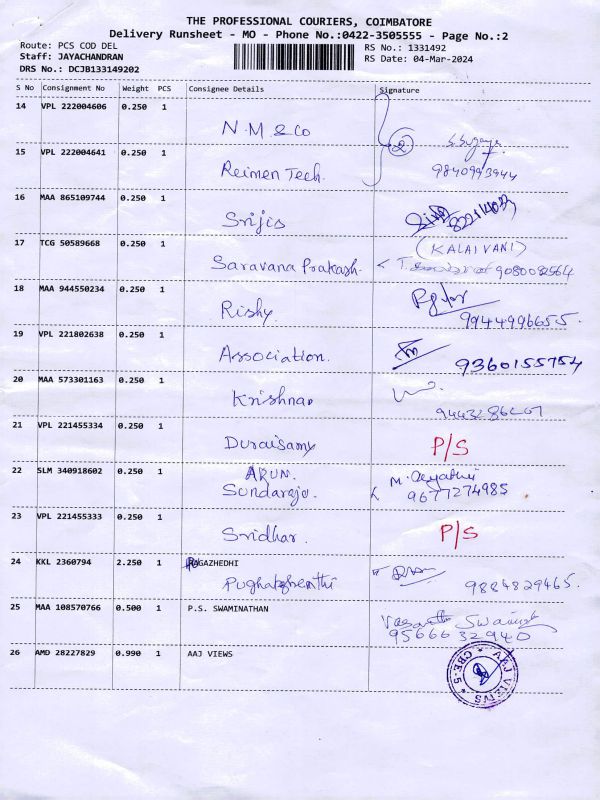 THE PROFESSIONAL COURIERS, COIMBATORE
Delivery Runsheet - MO - Phone No.:0422-3505555 - Page No.:2
Route: PCS COD DEL
RS No.: 1331492
Staff: JAYACHANDRAN
RS Date: 04-Mar-2024
DRS No.: DCJB133149202
S No Consignment No Weight PCS Consignee Details Signature
14 VPL 222004606 0.250 1
N.M. & Co
2
15 VPL 222004641 0.250 1
Reimen Tech.
9840993944
16 MAA 865109744 0.250 1
Srijis
17 TCG 50589668 0.250 1
(KALAIVANI)
Saravana Prakash.
18 MAA 944550234 0.250 1
Rishy
9944996655.
19 VPL 221802638 0.250 1
Association.
9360155754
20 MAA 573301163 0.250 1
Krishnan
21 VPL 221455334 0.250 1
Duraisamy P/S
22 SLM 340918602 0.250 1
ARUN.
Sundaraju.
9677274985
23 VPL 221455333 0.250 1
Sridhar. P/S
24 KKL 2360794 2.250 1
Pughazhenthi
9884829465.
25 MAA 108570766 0.500 1 P.S. SWAMINATHAN
9566632940
26 AMD 28227829 0.990 1 AAJ VIEWS
* AAJ VIEWS * CBE-5